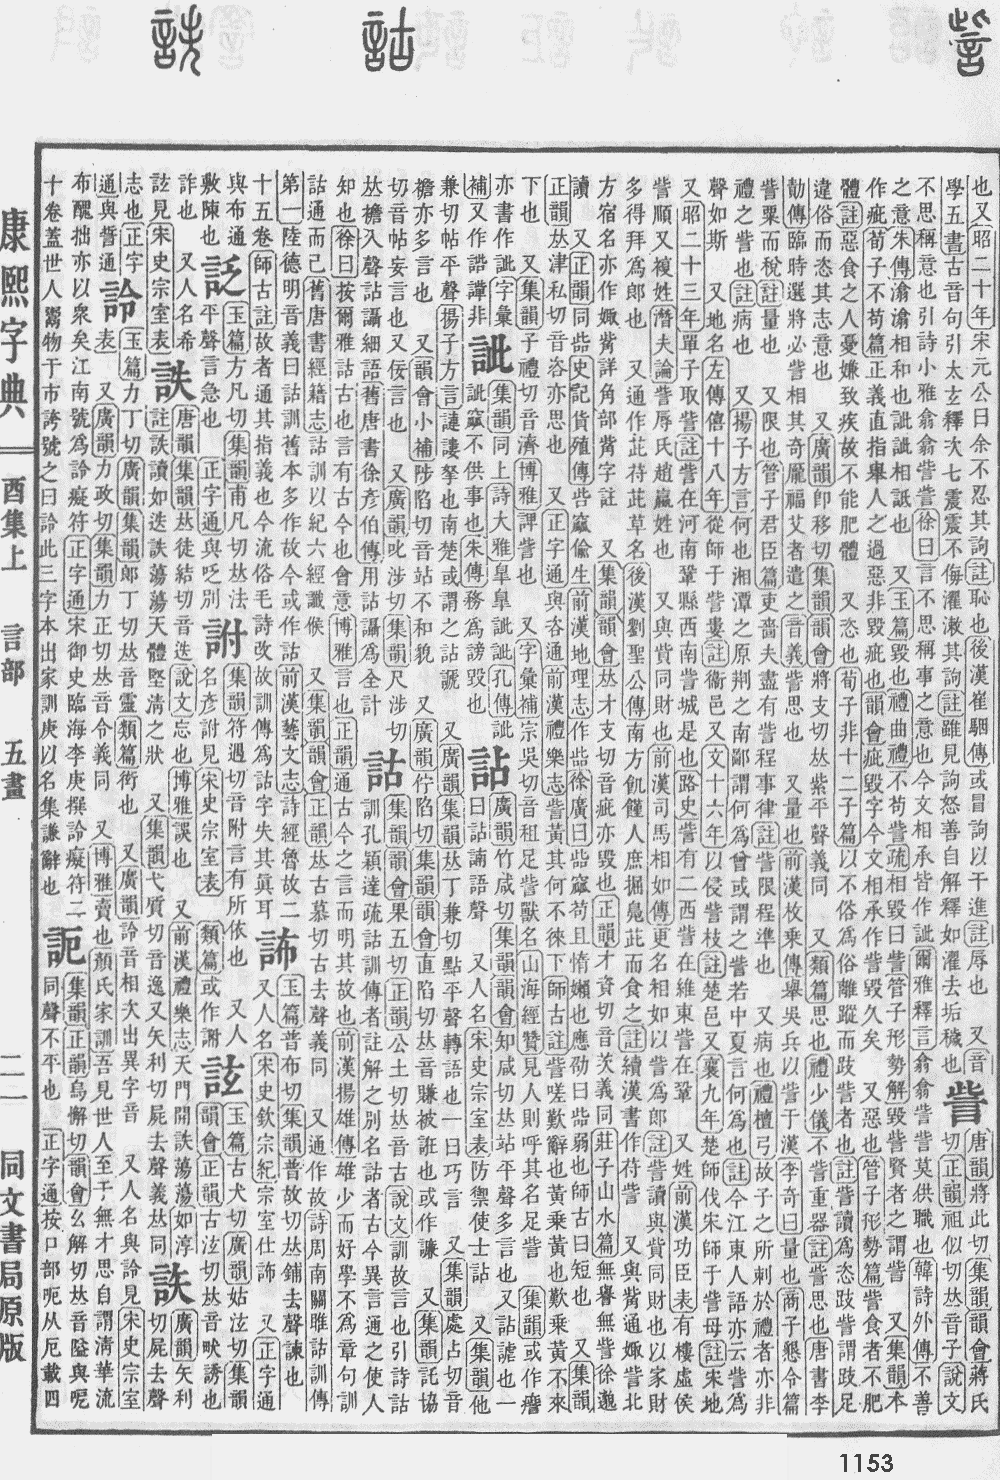 訾
詁
䚳
也又昭二十年宋元公曰余不忍其訽註恥也後漢崔駰傳或冒訽以干進註辱也 又音
學五書古音句引太玄釋次七震震不侮濯漱其訽註雖見訽怒善自解釋如濯去垢穢也
訾
唐韻將此切集韻韻會蔣氏
切正韻祖似切𠀤音子說文
不思稱意也引詩小雅翕翕訾訾徐曰言不思稱事之意也今文相承皆作訿爾雅釋言翕翕訾訾莫供職也韓詩外傳不善
之意朱傳潝潝相和也訿訿相詆也 又玉篇毀也禮曲禮不苟訾疏相毀曰訾管子形勢解毀訾賢者之謂訾 又集韻本
作疵荀子不苟篇正義直指舉人之過惡非毀疵也韻會疵毀字今文相承作訾毀久矣 又惡也管子形勢篇訾食者不肥
體註惡食之人憂嫌致疾故不能肥體 又恣也荀子非十二子篇以不俗爲俗離蹤而跂訾者也註訾讀爲恣跂訾謂跂足
違俗而恣其志意也 又廣韻卽移切集韻韻會將支切𠀤紫平聲義同 又類篇思也禮少儀不訾重器註訾思也唐書李
勣傳臨時選將必訾相其奇龎福艾者遣之音義訾思也 又量也前漢枚乘傳舉吳兵以訾于漢李奇曰量也商子懇令篇
訾粟而稅註量也 又限也管子君臣篇吏嗇夫盡有訾程事律註訾限程準也 又病也禮檀弓故子之所刺於禮者亦非
禮之訾也註病也 又揚子方言何也湘潭之原荆之南鄙謂何爲曾或謂之訾若中夏言何爲也註今江東人語亦云訾爲
聲如斯 又地名左傳僖十八年從師于訾婁註衞邑 又文十六年以侵訾枝註楚邑 又襄九年楚師伐宋師于訾毋註宋地
又昭二十三年單子取訾註訾在河南鞏縣西南訾城是也路史訾有二西訾在維東訾在鞏 又姓前漢功臣表有樓虛侯
訾順又複姓潛夫論訾辱氏趙嬴姓也 又與貲同財也前漢司馬相如傳更名相如以訾爲郎註訾讀與貲同財也以家財
多得拜爲郎也 又通作茈苻茈草名後漢劉聖公傳南方飢饉人庶掘鳧茈而食之註續漢書作苻訾 又與觜通娵訾北
方宿名亦作娵觜詳角部觜字註 又集韻韻會𠀤才支切音疵亦毀也正韻才資切音茨義同莊子山水篇無譽無訾徐邈
讀 又正韻同些史記貨殖傳呰窳偷生前漢地理志作呰徐廣曰呰窳苟且惰嬾也應劭曰呰弱也師古曰短也 又集韻
正韻𠀤津私切音咨亦思也 又正字通與咨通前漢禮樂志訾黃其何不徠下師古註訾嗟歎辭也黃乘黃也歎乘黃不來
下也 又集韻子禮切音濟博雅諀訾也 又字彙補宗吳切音租足訾獸名山海經贊見人則呼其名足訾 集韻或作㾹
亦書作訿字彙
訿
集韻同上詩大雅皐皐訿訿孔傳訿
訿窳不供事也朱傳務爲謗毀也
補又作䛐謣非
詀
廣韻竹咸切集韻韻會知咸切𠀤站平聲多言也又詀謔也一
曰詀諵語聲 又人名宋史宗室表防禦使士詀 又集韻他
兼切帖平聲揚子方言謰謱拏也南楚或謂之詀謕 又廣韻集韻𠀤丁兼切點平聲轉語也一曰巧言 又集韻處占切音
襜亦多言也 又韻會小補陟陷切音站不和貌 又廣韻佇陷切集韻韻會直陷切𠀤音賺被誑也或作謙 又集韻託協
切音帖妄言也又佞言也 又廣韻叱涉切集韻尺涉切
𠀤襜入聲詀讘細語舊唐書徐彥伯傳用詀讘爲全計
詁
集韻韻會果五切正韻公土切𠀤音古說文訓故言也引詩詁
訓孔穎達疏詁訓傳者註解之別名詁者古今異言通之使人
知也徐曰按爾雅詁古也言有古今也會意博雅言也正韻通古今之言而明其故也前漢揚雄傳雄少而好學不爲章句訓
詁通而已舊唐書經籍志詁訓以紀六經讖候 又集韻韻會正韻𠀤古慕切古去聲義同 又通作故詩周南關雎詁訓傳
第一陸德明音義曰詁訓舊本多作故今或作詁前漢藝文志詩經魯故二
十五卷師古註故者通其指義也今流俗毛詩改故訓傳爲詁字失其眞耳
䛔
玉篇普布切集韻普故切𠀤鋪去聲諫也
又人名宋史欽宗紀宗室仕䛔 又正字通
與布通
敷陳也
䛀
玉篇方凡切集韻甫凡切𠀤法
平聲言急也 正字通與𧦪別
詂
集韻符遇切音附言有所依也 又人
名彥詂見宋史宗室表 類篇或作謝
詃
玉篇古犬切廣韻姑泫切集韻
韻會正韻古泫切𠀤音畎誘也
詐也 又人名希
詃見宋史宗室表
詄
唐韻集韻𠀤徒結切音迭說文忘也博雅誤也 又前漢禮樂志天門開詄蕩蕩如淳
註詄讀如迭詄蕩蕩天體堅淸之狀 又集韻弋質切音逸又矢利切屍去聲義𠀤同
詄
廣韻矢利
切屍去聲
志也正字
通與誓通
詅
玉篇力丁切廣韻集韻郞丁切𠀤音靈類篇衒也 又廣韻詅音相次出異字音 又人名與詅見宋史宗室
表 又廣韻力政切集韻力正切𠀤音令義同 又博雅賣也顏氏家訓吾見世人至于無才思自謂淸華流
布醜拙亦以衆矣江南號爲詅癡符正字通宋御史臨海李庚撰詅癡符二
十卷蓋世人鬻物于市誇號之曰詅此三字本出家訓庚以名集謙辭也
䛩
集韻正韻烏懈切韻會么解切𠀤音隘與呃
同聲不平也 正字通按口部呃从厄載四
康熙字典
酉集上 言部 五畫
二一
同文書局原版
1153